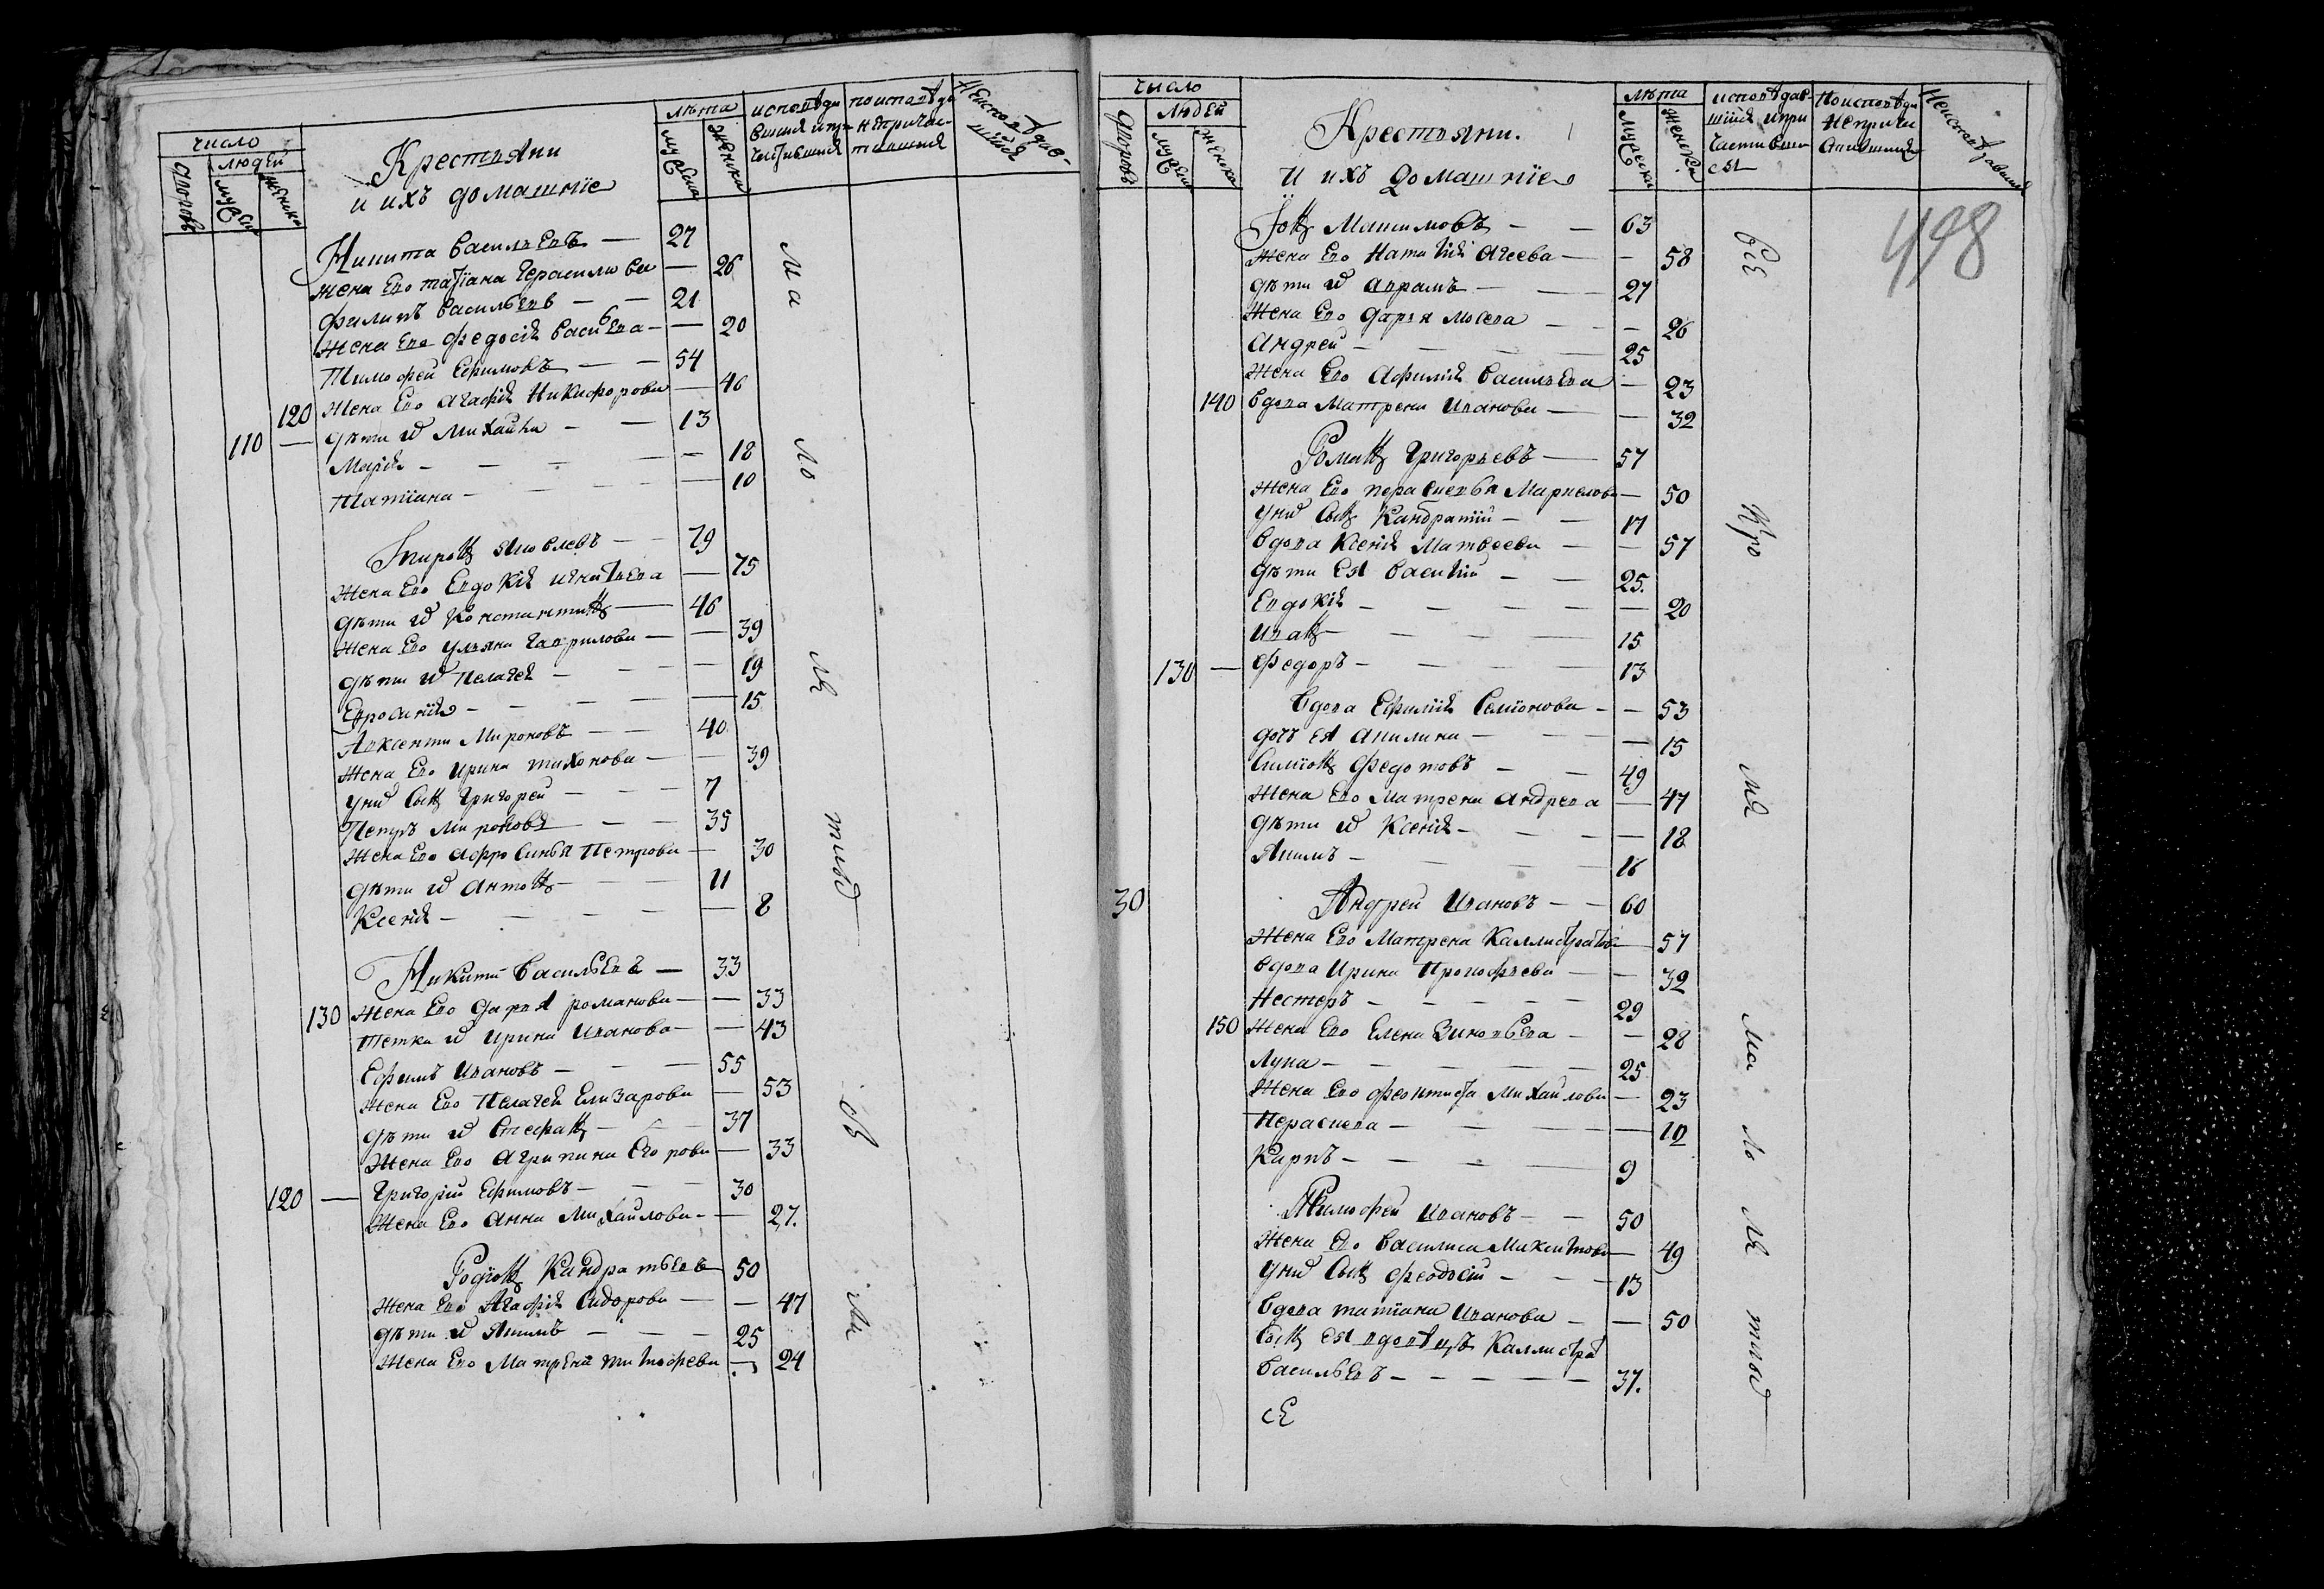 число
людей
дворовъ
мужска
женска
Крестьяни
и ихъ домашнїе
лѣта
мужска
женска
исповѣда
вшихся и при
частившихся
по исповѣди
не причас
тившихся
Не исповѣдав-
шихся
Никита Васильевъ — 27
Жена Ево татїана Герасимова — 26
Филипъ Васильевъ — — 21
Жена Ево Федосїя Васильева — — 20
Тимофей Ефимовъ — — 54
120 Жена Ево Агафїя Никифорова — 46
110 — дѣти и҃ Михайла — — 13
Марїя — — — — 18
Татїана — — — — 10
Миронъ Яковлевъ — — 79
Жена Ево Евдокїя Игнатьева — 75
дѣти и҃ Константинъ — 46
Жена Ево Ульяна Гаврилова — — 39
дѣти и҃ Пелагея — — — 19
Ефросинїя — — — — 15
Авксенти Мироновъ — — 40
Жена Ево Ирина тихонова — — 39
у ни҃ сынъ Григорей — — — 7
Петръ Мироновъ — — 35
Жена Ево Афросинья Петрова — 30
дѣти и҃ Антонъ — — — 11
Ксенїя — — — — — 8
Никита Васильевъ — 33
130 Жена Ево Дарья романова — — 33
Тетка и҃ Ирина Иванова — — 43
Ефимъ Ивановъ — — — 55
Жена Ево Пелагея Елизарова — 53
дѣти и҃ Стефанъ — — — 37
Жена Ево Агрипина Егорова — 33
120 — Григорїй Ефимовъ — — — 30
Жена Ево Анна Михайлова — — 27.
Родїонъ Кандратьевъ 50
Жена Ево Агафїя Сидорова — — 47
дѣти и҃ Якимъ — — — 25
Жена Ево Матрена тимофеева — 24
число
людей
дворовъ
мужска
женска
Крестьяни.
и ихъ домашнїе
лѣта
мужска
женска
исповѣдав-
шихся и при
частивши
ся
По исповѣди
не прича
стившихся
Неисповѣдавшихся
498
Максимовъ — — 63
Жена Ево Наталїя Агеева — — 58
дѣти и҃ Аврамъ — — 27
Жена Ево Дарья Мосева — — — 26
Андрей — — — — 25
Жена Ево Афимїя Васильева — 23
140 Вдова Матрена Иванова — — 32
Романъ Григорьевъ — 57
Жена Ево Маркелова — 50
у ни҃ сынъ Кандратїй — — 17
Вдова Ксенїя Матвеева — — 57
дѣти Ея Василїй — — 25.
Евдокїя — — — — — 20
Иванъ — — — — 15
130 — Федоръ — — — — 13
Вдова Ефимїя Семїонова — — 53
дочь Ея Акилина — — — 15
Симїонъ Федотовъ — — 49
Жена Ево Матрена Андрева — 47
дѣти и҃ Ксенїя — — — — 18
Якимъ — — — — 16
30 Андрей Ивановъ — — 60
Жена Ево Матрена Каллистратова — 57
Вдова Ирина Прокофьева — — 32
Нестеръ — — — — — 29
150 Жена Ево Елена Зиновьева — — 28
Лука — — — — — 25
Жена Ево Феоктиста Михайлова — 23
Параскева — — — — 12
Карпъ — — — — 9
Тимофей Ивановъ — — 50
Жена Ево Василиса — 49
у ни҃ сынъ Феодосїй — — — 13
Вдова татїана Иванова — — 50
Сынъ ея вдовецъ Каллистра
Васильевъ — — — — — 37.